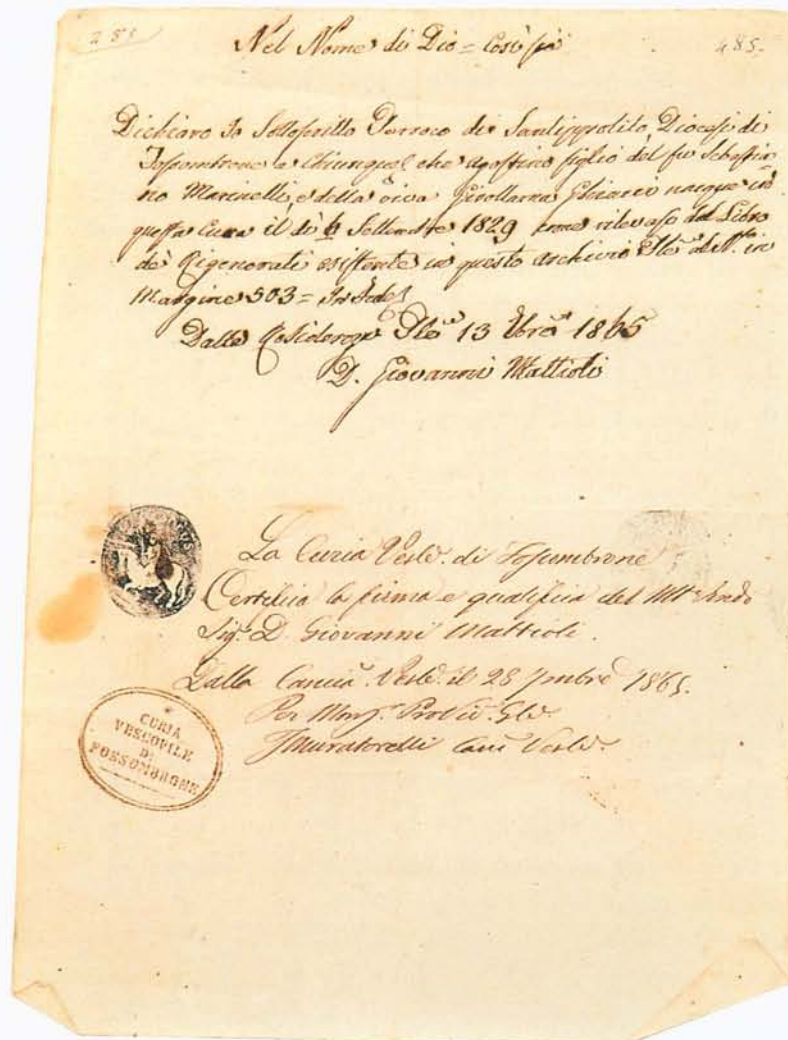 285
485.
Nel Nome di Dio = Così sia
Dichiaro Io Sottoscritto Parroco di Santippolito, Diocesi di
Fossombrone a chiunque, che Agostino figlio del fu Sebastia-
no Marinelli, e della viva nacque in
questa Cura il dì 6 Settembre 1829 come rilevasi dal Libro
de' Rigenerati esistente in questo Archivio Ple. al N.o in
Margine 503 = In Fede
Dalla 13 1865
D. Giovanni Mattioli
La Curia Vesle. di Fossombrone
Certifica la firma e qualifica del
Sig. D. Giovanni Mattioli.
Dalla Vesle. il 28 1865.
Per Monsr.
Muratorelli Vesle.
CURIA
VESCOVILE
DI
FOSSOMBRONE